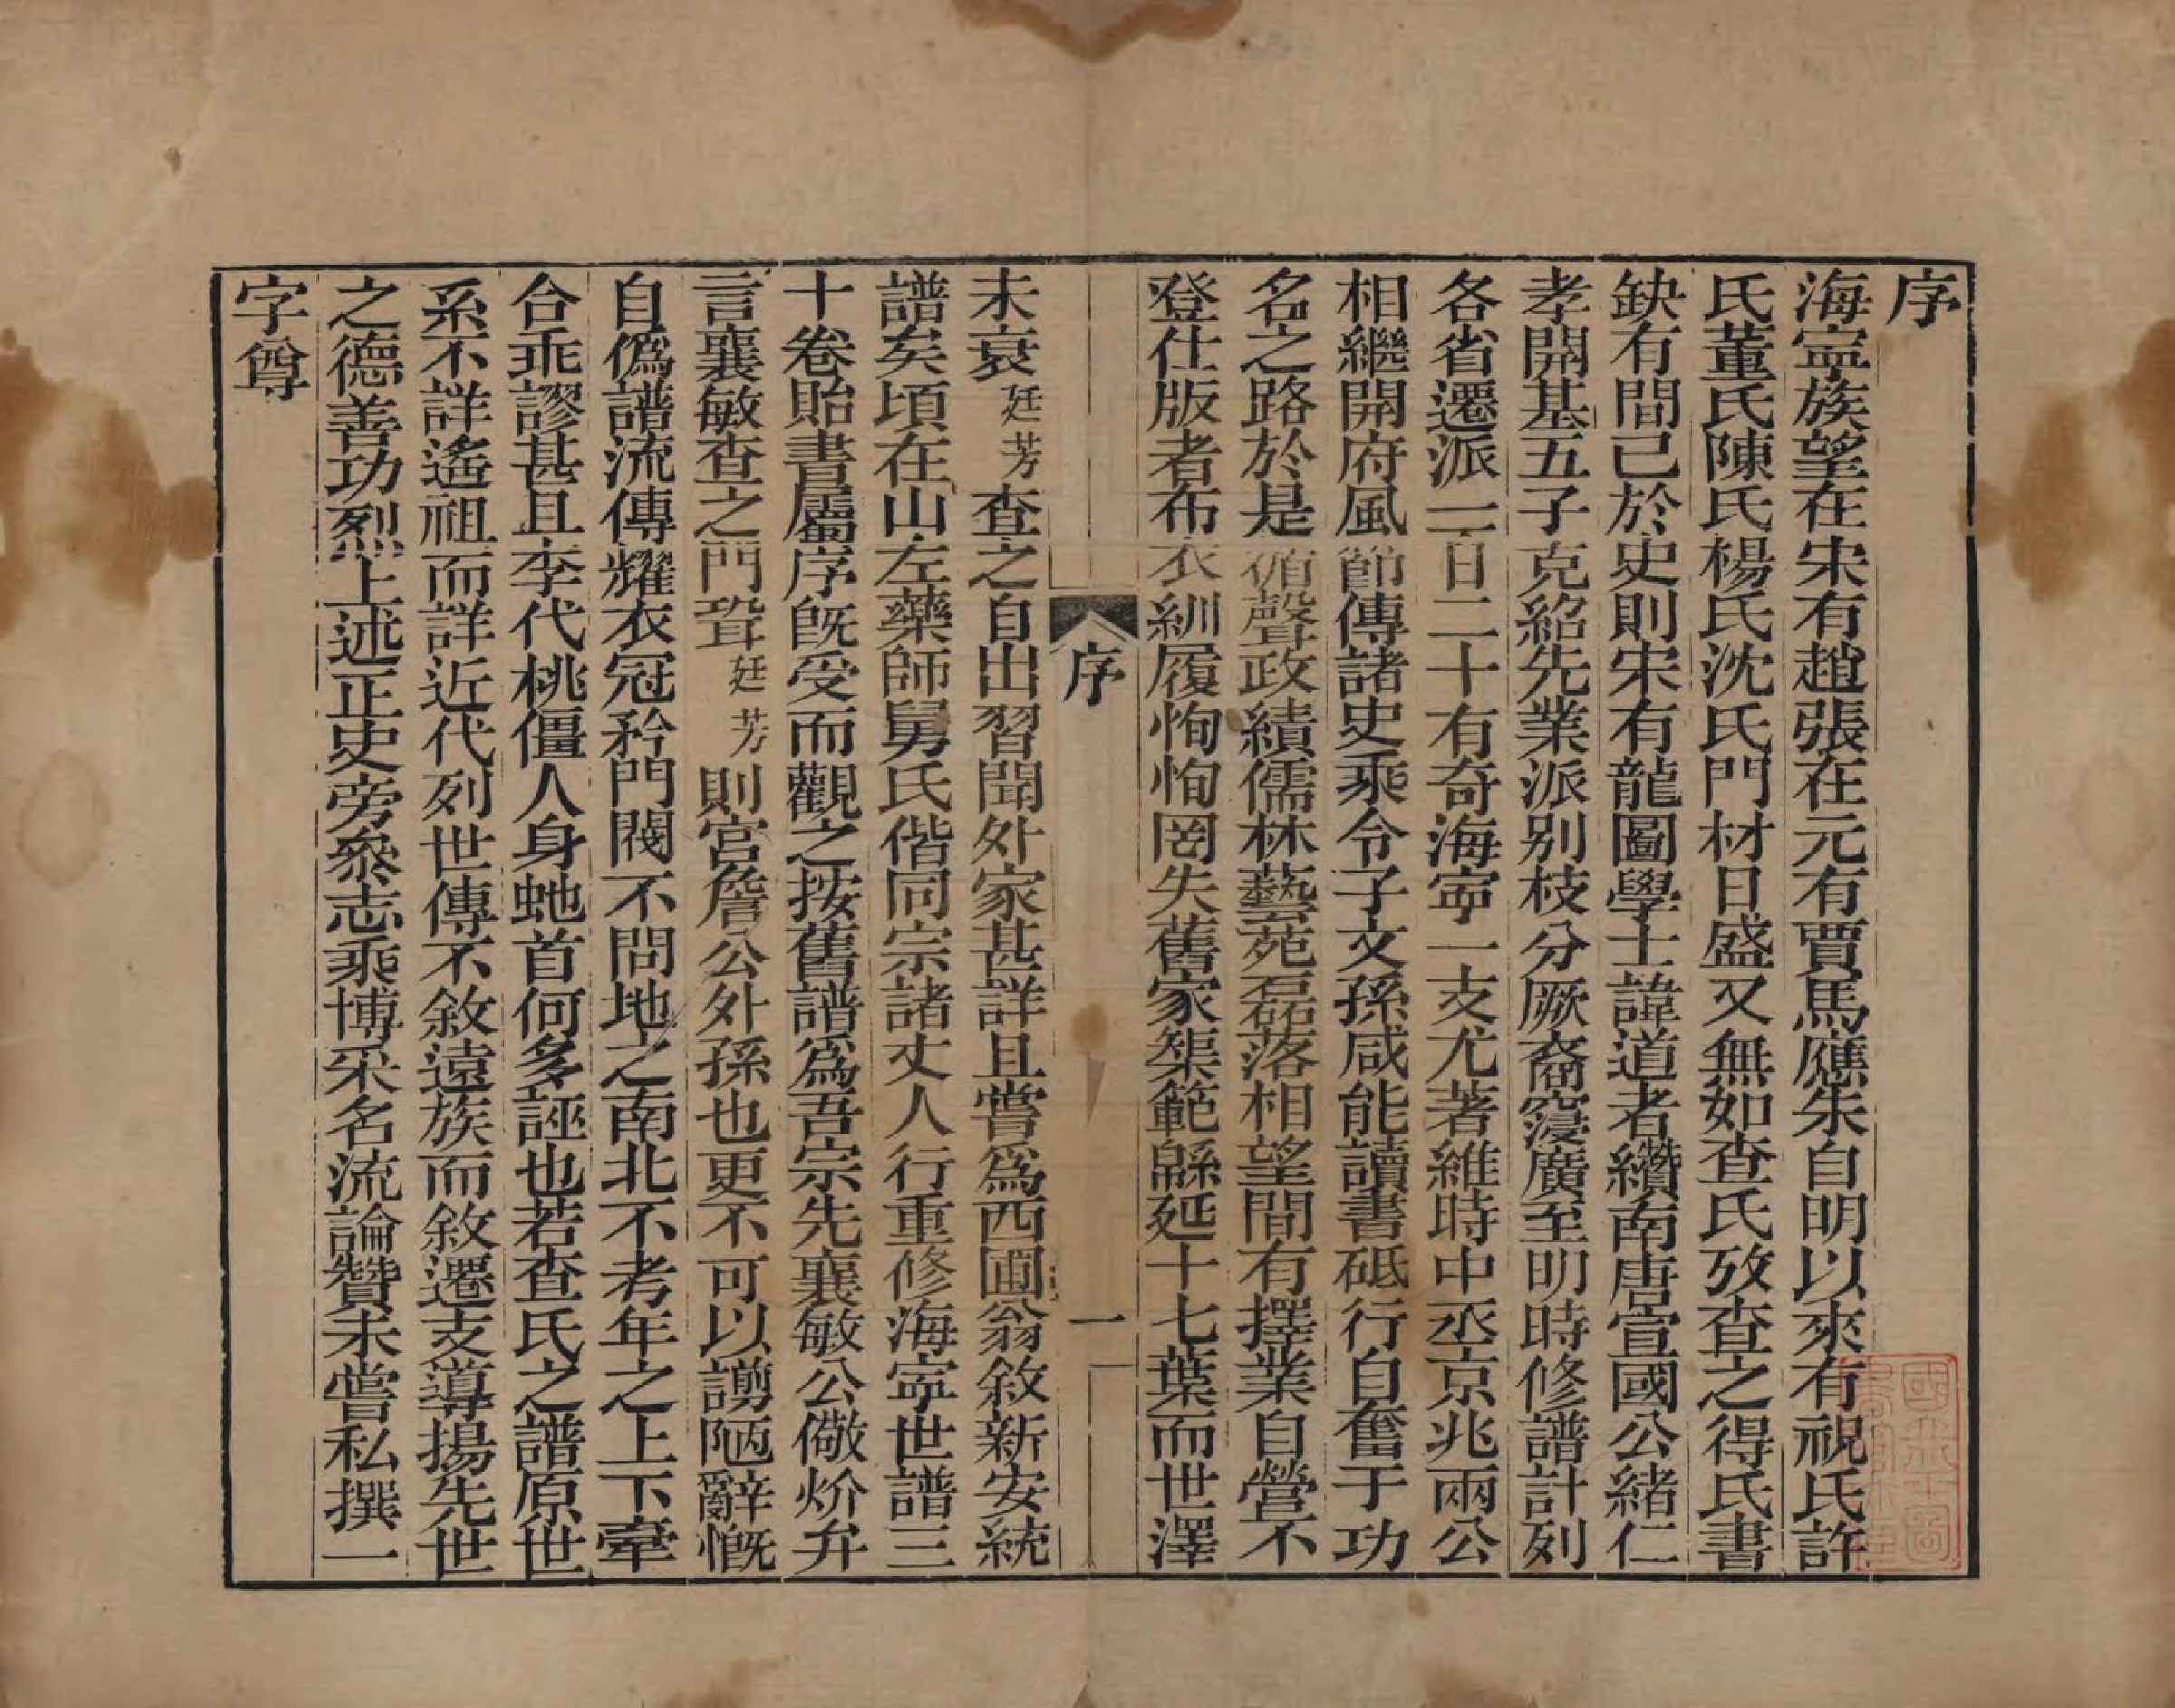 序
海寧族望在宋有趙張在元有賈馬應朱自明以來有視氏許
氏董氏陳氏楊氏沈氏門材日盛又無如查氏攷查之得氏書
缺有間已於史則宋有龍圖學士諱道者纘南唐宣國公緒仁
孝開基五子克紹先業派別枝分厥裔寖廣至明時修譜計列
各省遷派一百二十有奇海寧一支尤著維時中丞京兆兩公
相繼開府風節傳諸史乘令子文孫咸能讀書砥行自奮于功
名之路於是循聲政績儒林藝苑磊落相望間有擇業自營不
登仕版者布衣紃履恂恂罔失舊家榘範緜延十七葉而世澤
序
一
未衰廷芳查之自出習聞外家甚詳且嘗爲西圃翁敘新安統
譜矣頃在山左藥師舅氏偕同宗諸丈人行重修海寧世譜三
十卷貽書屬序旣受而觀之按舊譜爲吾宗先襄敏公儆炌弁
言襄敏查之門壻廷芳則宮詹公外孫也更不可以謭陋辭慨
自僞譜流傳耀衣冠矜門閥不問地之南北不考年之上下牽
合乖謬甚且李代桃僵人身虵首何多誣也若查氏之譜原世
系不詳遙祖而詳近代列世傳不敘遠族而敘遷支導揚先世
之德善功烈上述正史旁叅志乘博采名流論贊未嘗私撰一
字尊